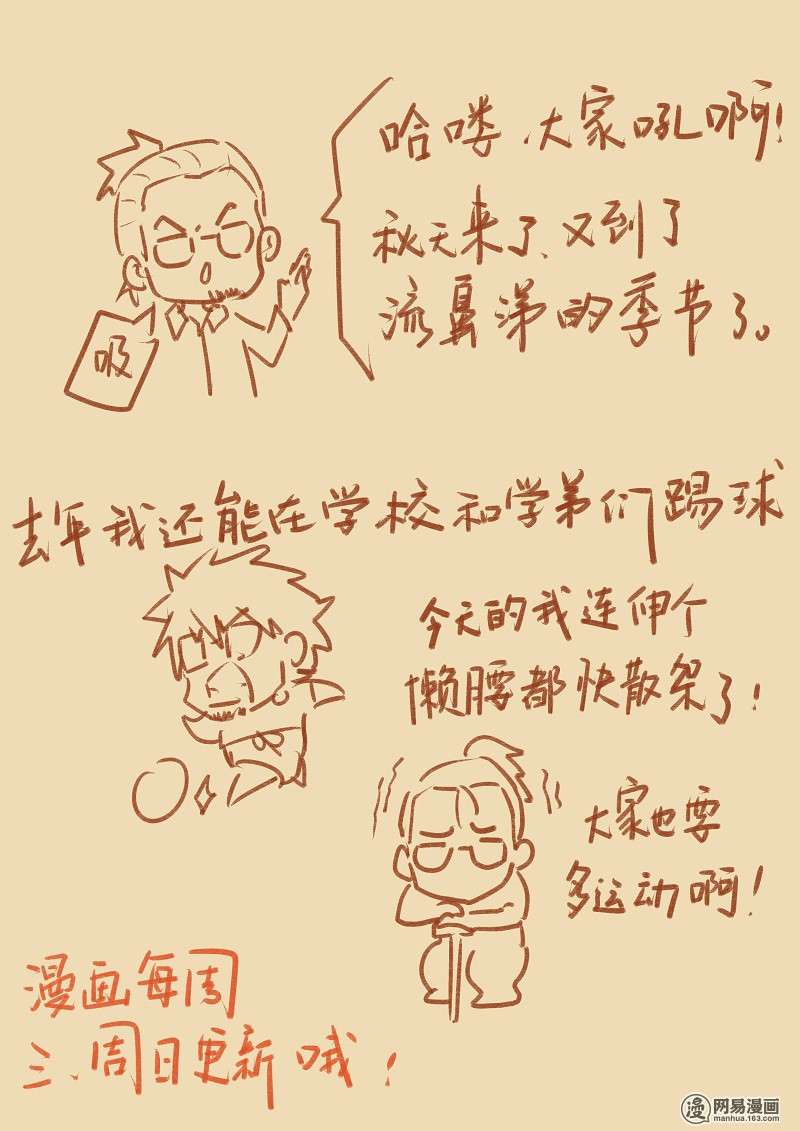 哈喽、大家吼啊!
秋天来了、又到了
流鼻涕的季节了。
吸
去年我还能在学校和学弟们踢球
今天的我连伸个
懒腰都快散架了!
大家也要
多运动啊!
漫画每周
三、周日更新哦!
漫 网易漫画
manhua.163.com